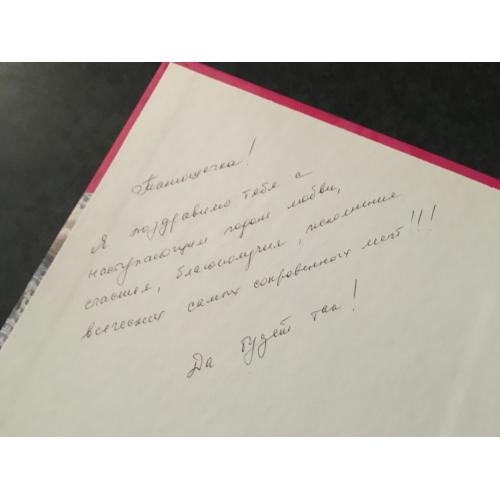 Танющечка!
Я поздравляю тебя с
наступающим годом любви,
счастья, благополучия, исполнение
всяческих самых сокровенных мечт!!!
Да будет так!